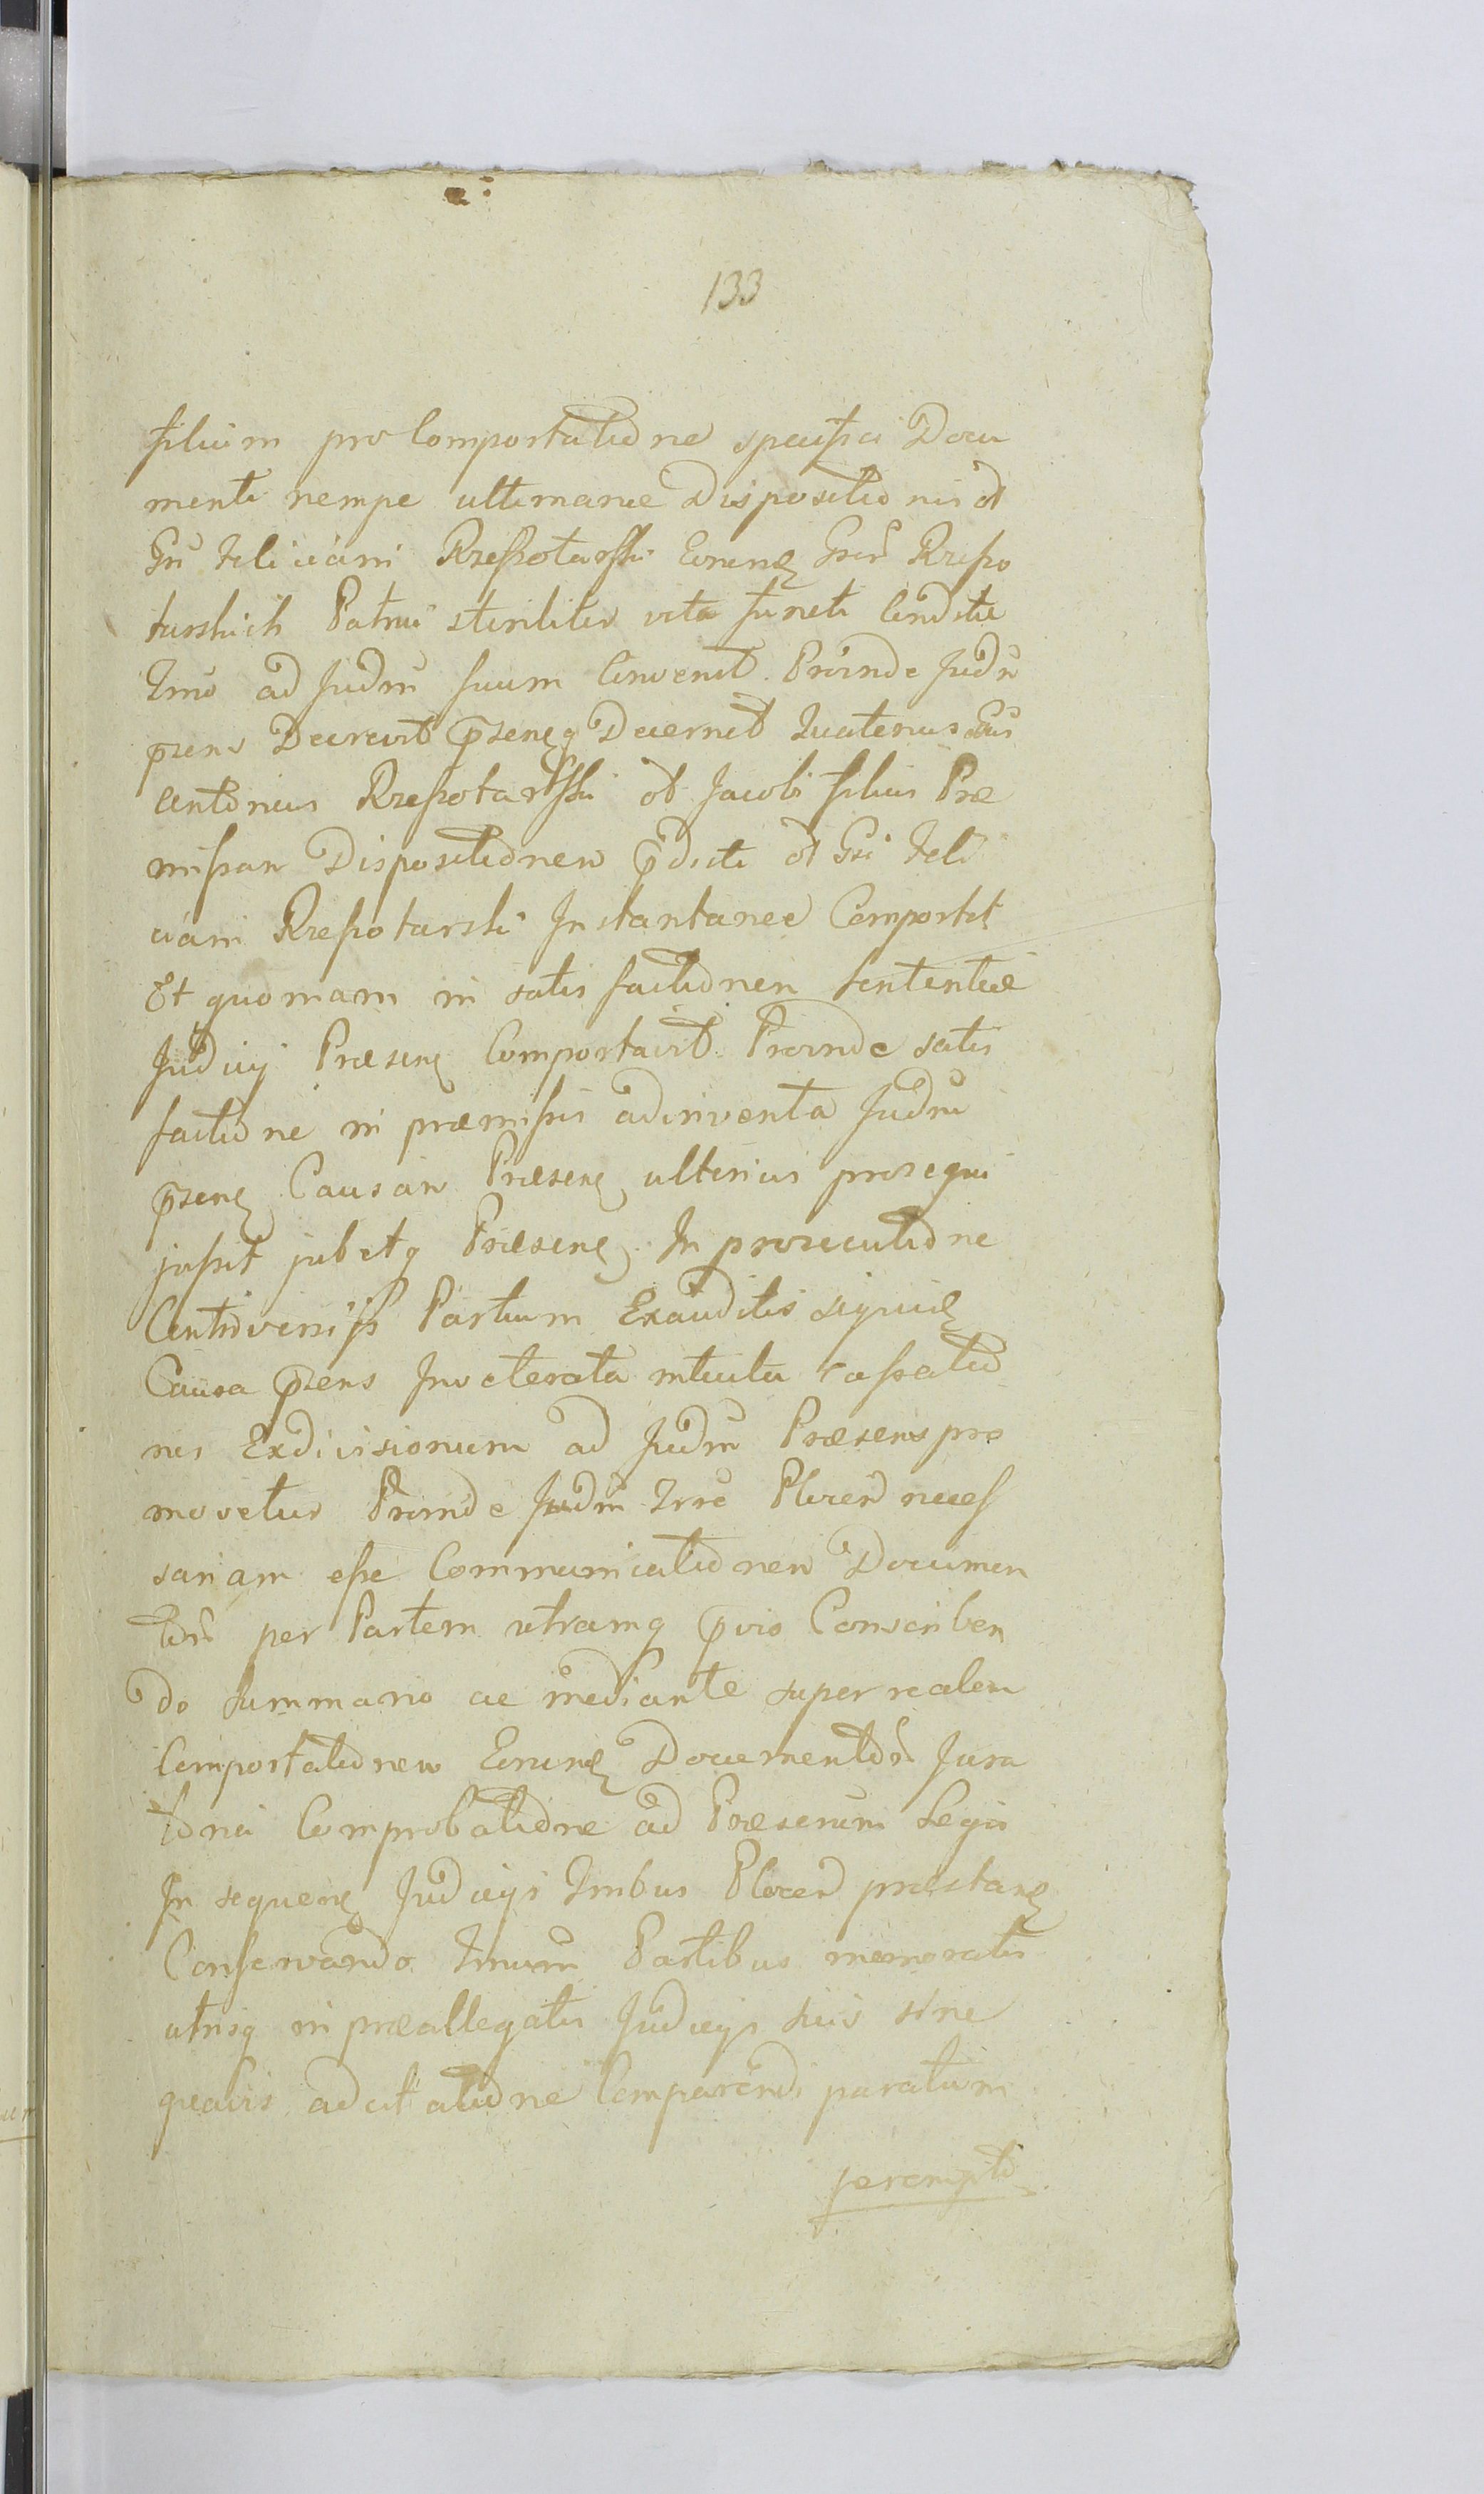 133
filium pro Comportatione specifici Docu
menti nempe ultimariæ Dispositionis ol
Gŭ Feliciani Rzeszotarski Eorund Grŭ Rzeszo
tarskich Patrui steriliter vita functi
Tmo ad Judm suum Convenit. Proinde Judm
p̄sens Decrevit p̄senq Decernit Quatenus Gŭs
Antonius Rzeszotarski ol Jacobi filius Præ
missam Dispositionem p̄dicti ol Gsi Feli
ciani Rzeszotarski Instantanee Comportet
Et quoniam in satis factionem Sententiæ
Judicij Præsen Comportavit. Proinde satis
factione in præmissis adinventa Judm
p̄sens Causam Præsen ulterius prosequi
jussit jubetq Præsen. In prosecutione
Controversijs Partium Exauditis siquid
Causa p̄sens Inveterata intuitu cassatio
nis Exdivisionum ad Judm Præsens pro
movetur Proinde Judm Trre Plocen neces
sariam esse Communicationem Documen
tor per Partem utramq p̄vio Conscriben
do Summario ac mediante super realem
Comportationem Eorund Documentor Jura
toria Comprobatione ad Præscrum Legis
In sequen Judicijs Tribus Plocen præstand
Conservando Tmum Partibus memoratis
utrisq in præallegatis Judicijs suis sine
quavis adcitatione Comparendi paratum
perempto